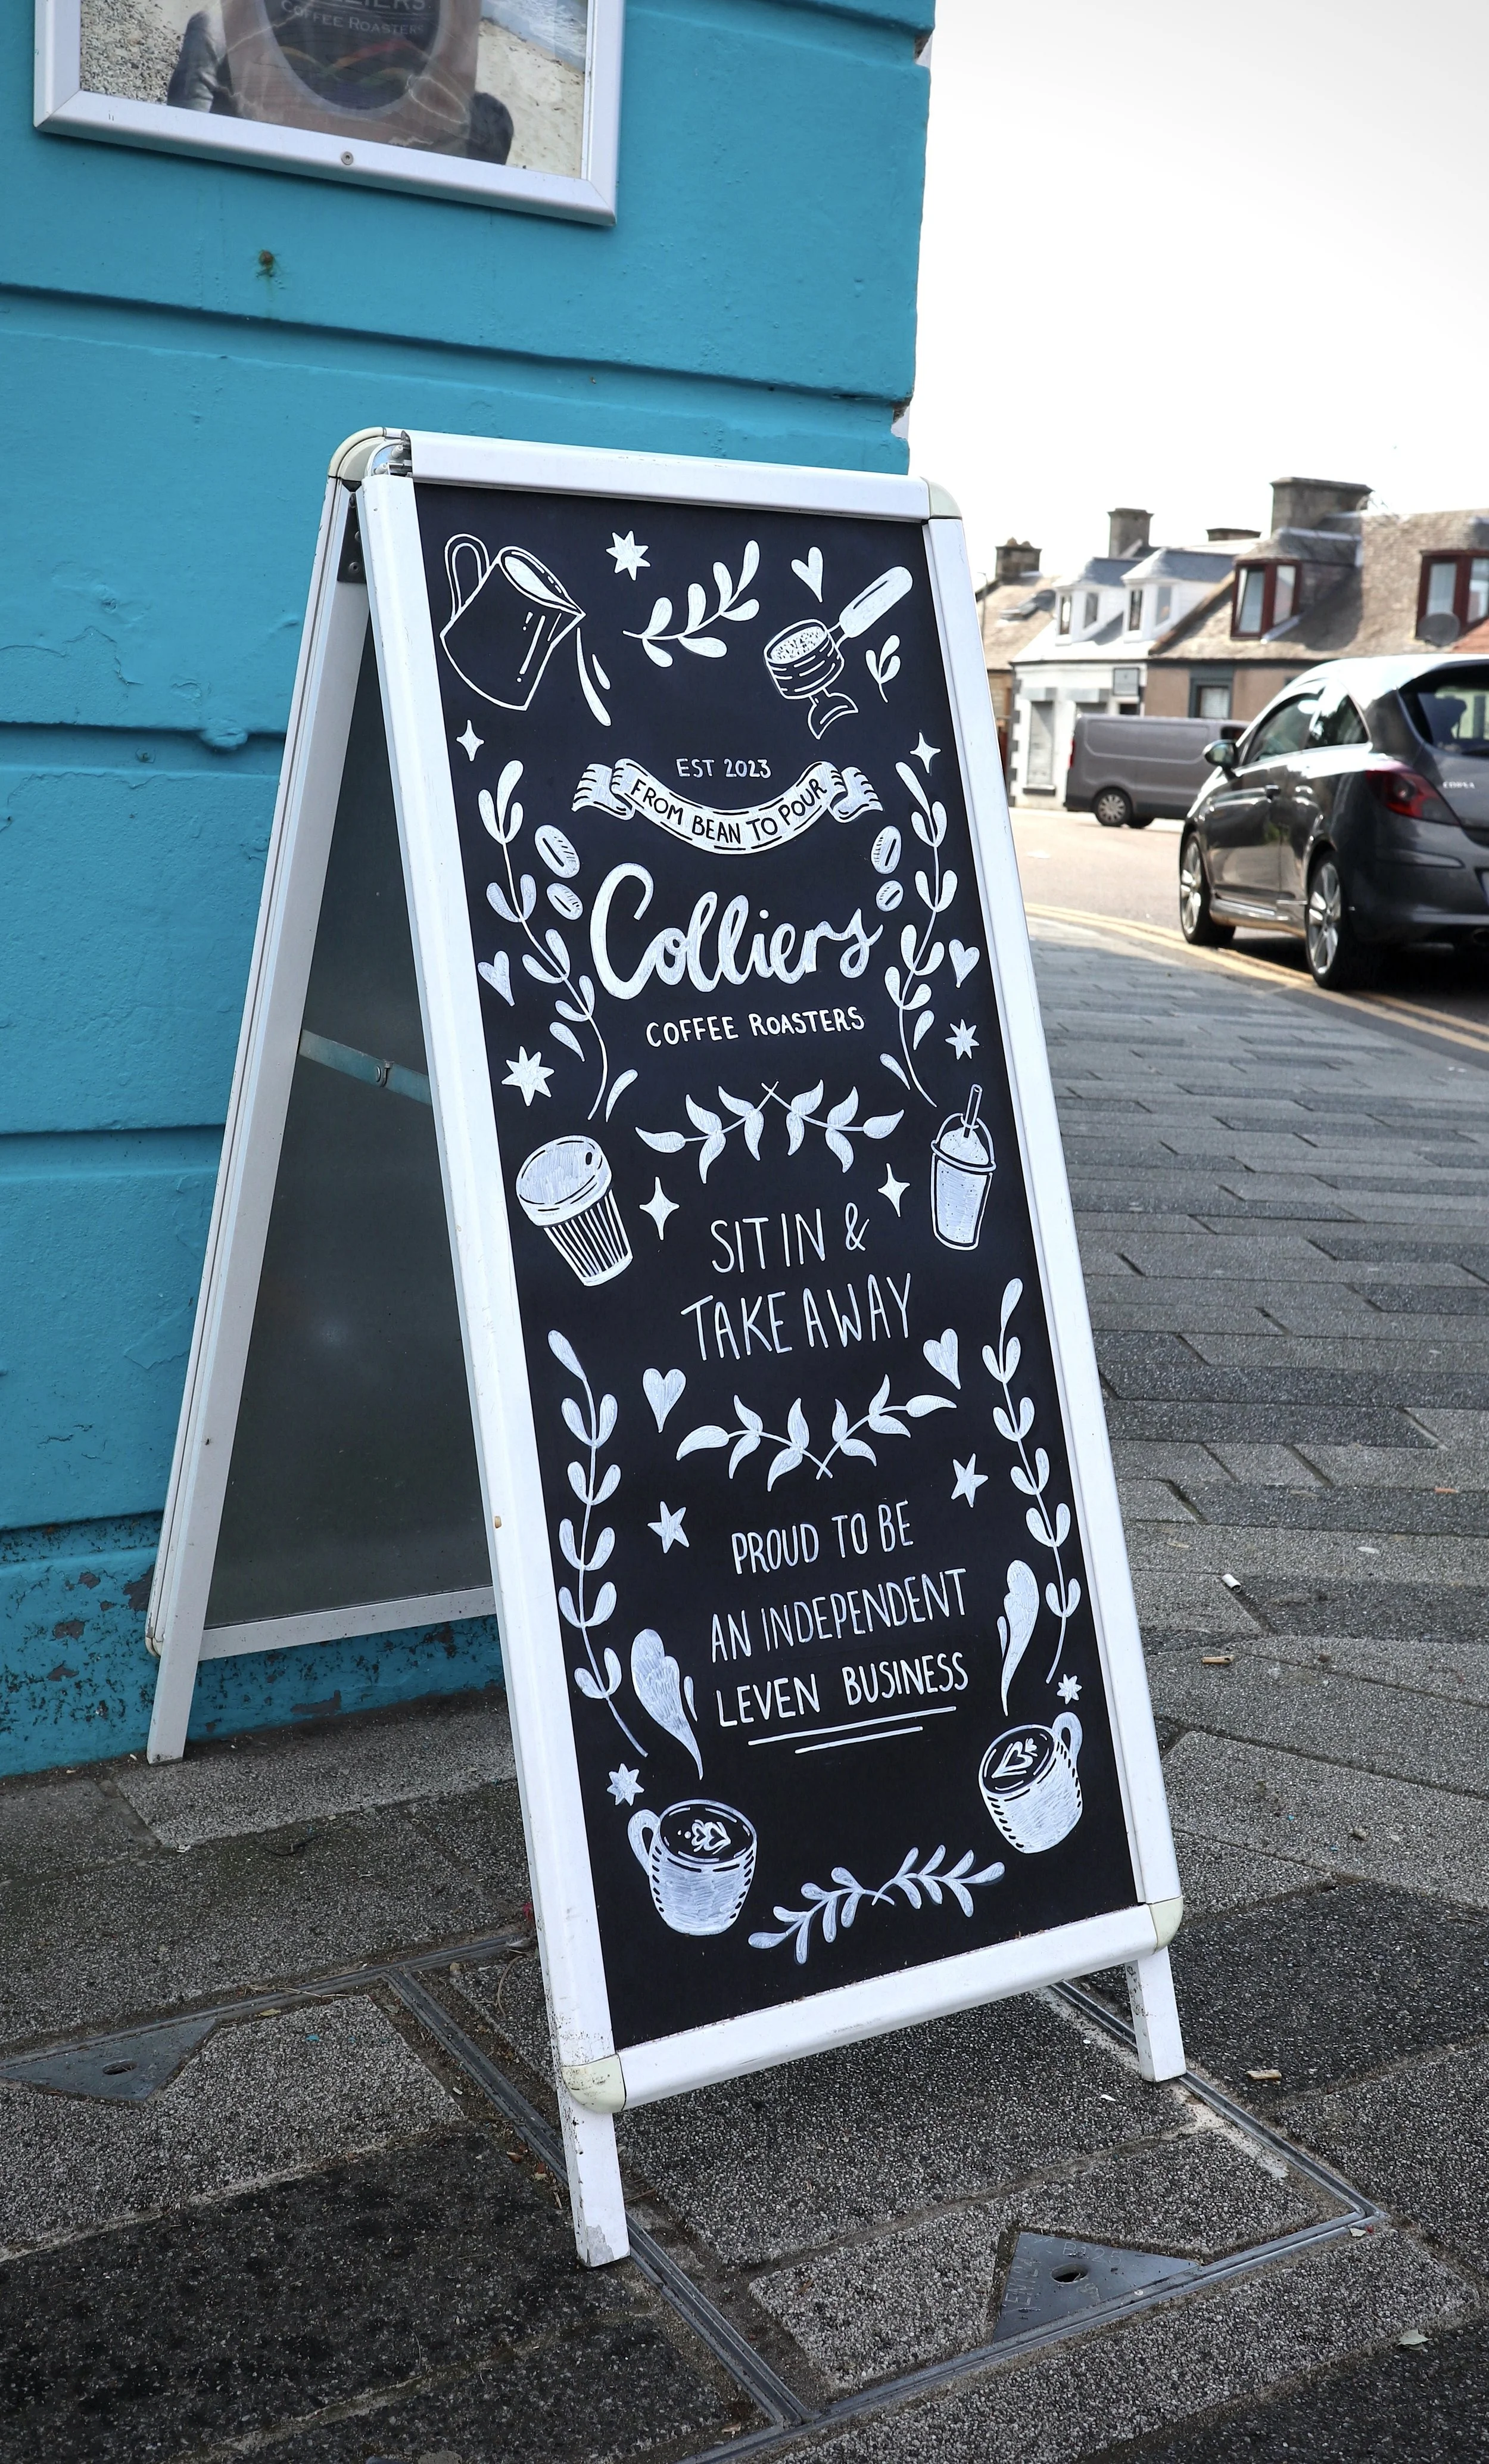 COFFEE ROASTERS
EST 2023
FROM BEAN TO POUR
Colliers
COFFEE ROASTERS
SIT IN &
TAKE AWAY
PROUD TO BE
AN INDEPENDENT
LEVEN BUSINESS